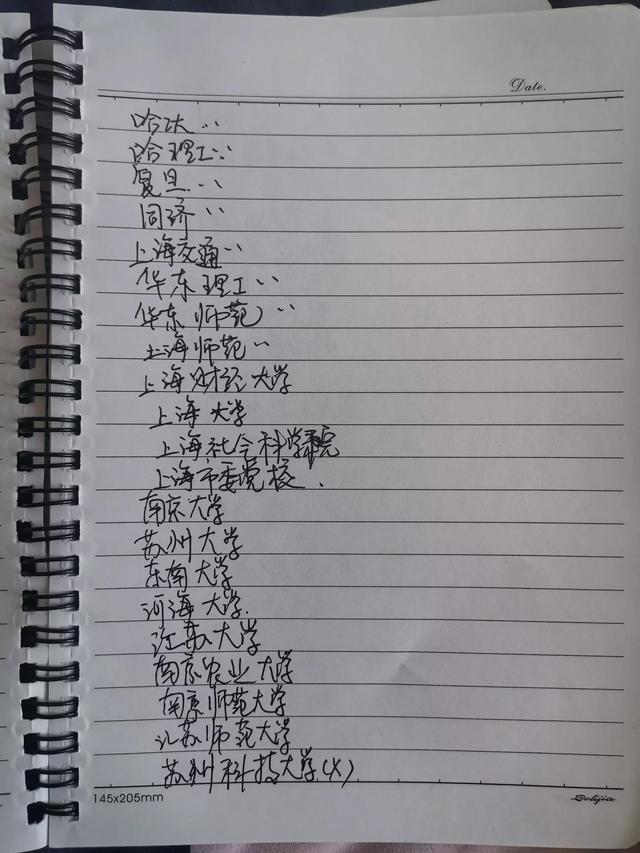 Date.
哈工大 ..
哈理工 ..
复旦 ..
同济 ..
上海交通 ..
华东理工 ..
华东师范 ..
上海师范 ..
上海财经大学
上海大学
上海社会科学院
上海市委党校 .
南京大学
苏州大学
东南大学
河海大学.
江苏大学
南京农业大学
南京师范大学
江苏师范大学
苏州科技大学(X)
145x205mm